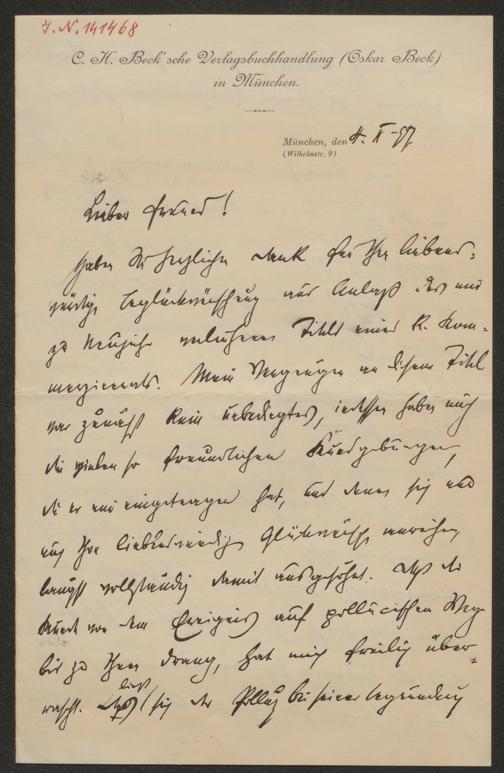 J. N. 141468
C. H. Beck'sche Verlagsbuchhandlung (Oskar Beck)
in München.
München, den 4. II - 97
(Wilhelmstr. 9)
Lieber Freund!
Haben Sie herzlichen Dank für Ihre liebens-
würdige Beglückwünschung aus Anlaß des mir
zu Neujahr verliehenen Titels eines K. Kom-
merzienrats. Mein Vergnügen an diesem Titel
war zunächst kein unbedingtes, indessen haben mich
die vielen so freundlichen Kundgebungen,
die er mir eingetragen hat, und denen sich nun
auch Ihre liebenswürdigen Glückwünsche anreihen,
längst vollständig damit ausgesöhnt. Daß die
Kunde von dem Ereignis auf pollucischen Weg
bis zu Ihnen drang, hat mich freilich über-
rascht. Daß sich der Pollux bei seiner Begründung
ließ